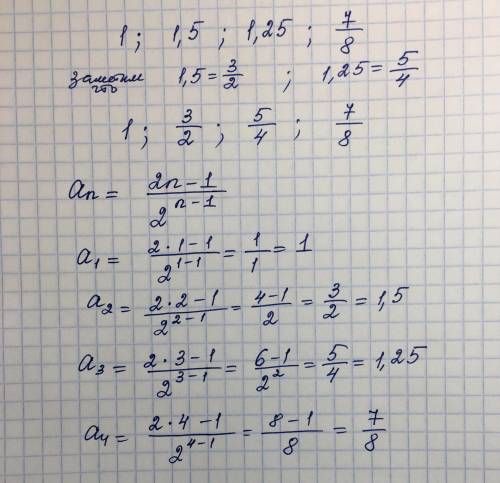 1 ; 1,5 ; 1,25 ; 7/8
заметим что 1,5 = 3/2 ; 1,25 = 5/4
1 ; 3/2 ; 5/4 ; 7/8
aₙ = (2n-1)/2^(n-1)
a₁ = (2·1-1)/2^(1-1) = 1/1 = 1
a₂ = (2·2-1)/2^(2-1) = (4-1)/2 = 3/2 = 1,5
a₃ = (2·3-1)/2^(3-1) = (6-1)/2² = 5/4 = 1,25
a₄ = (2·4-1)/2^(4-1) = (8-1)/8 = 7/8